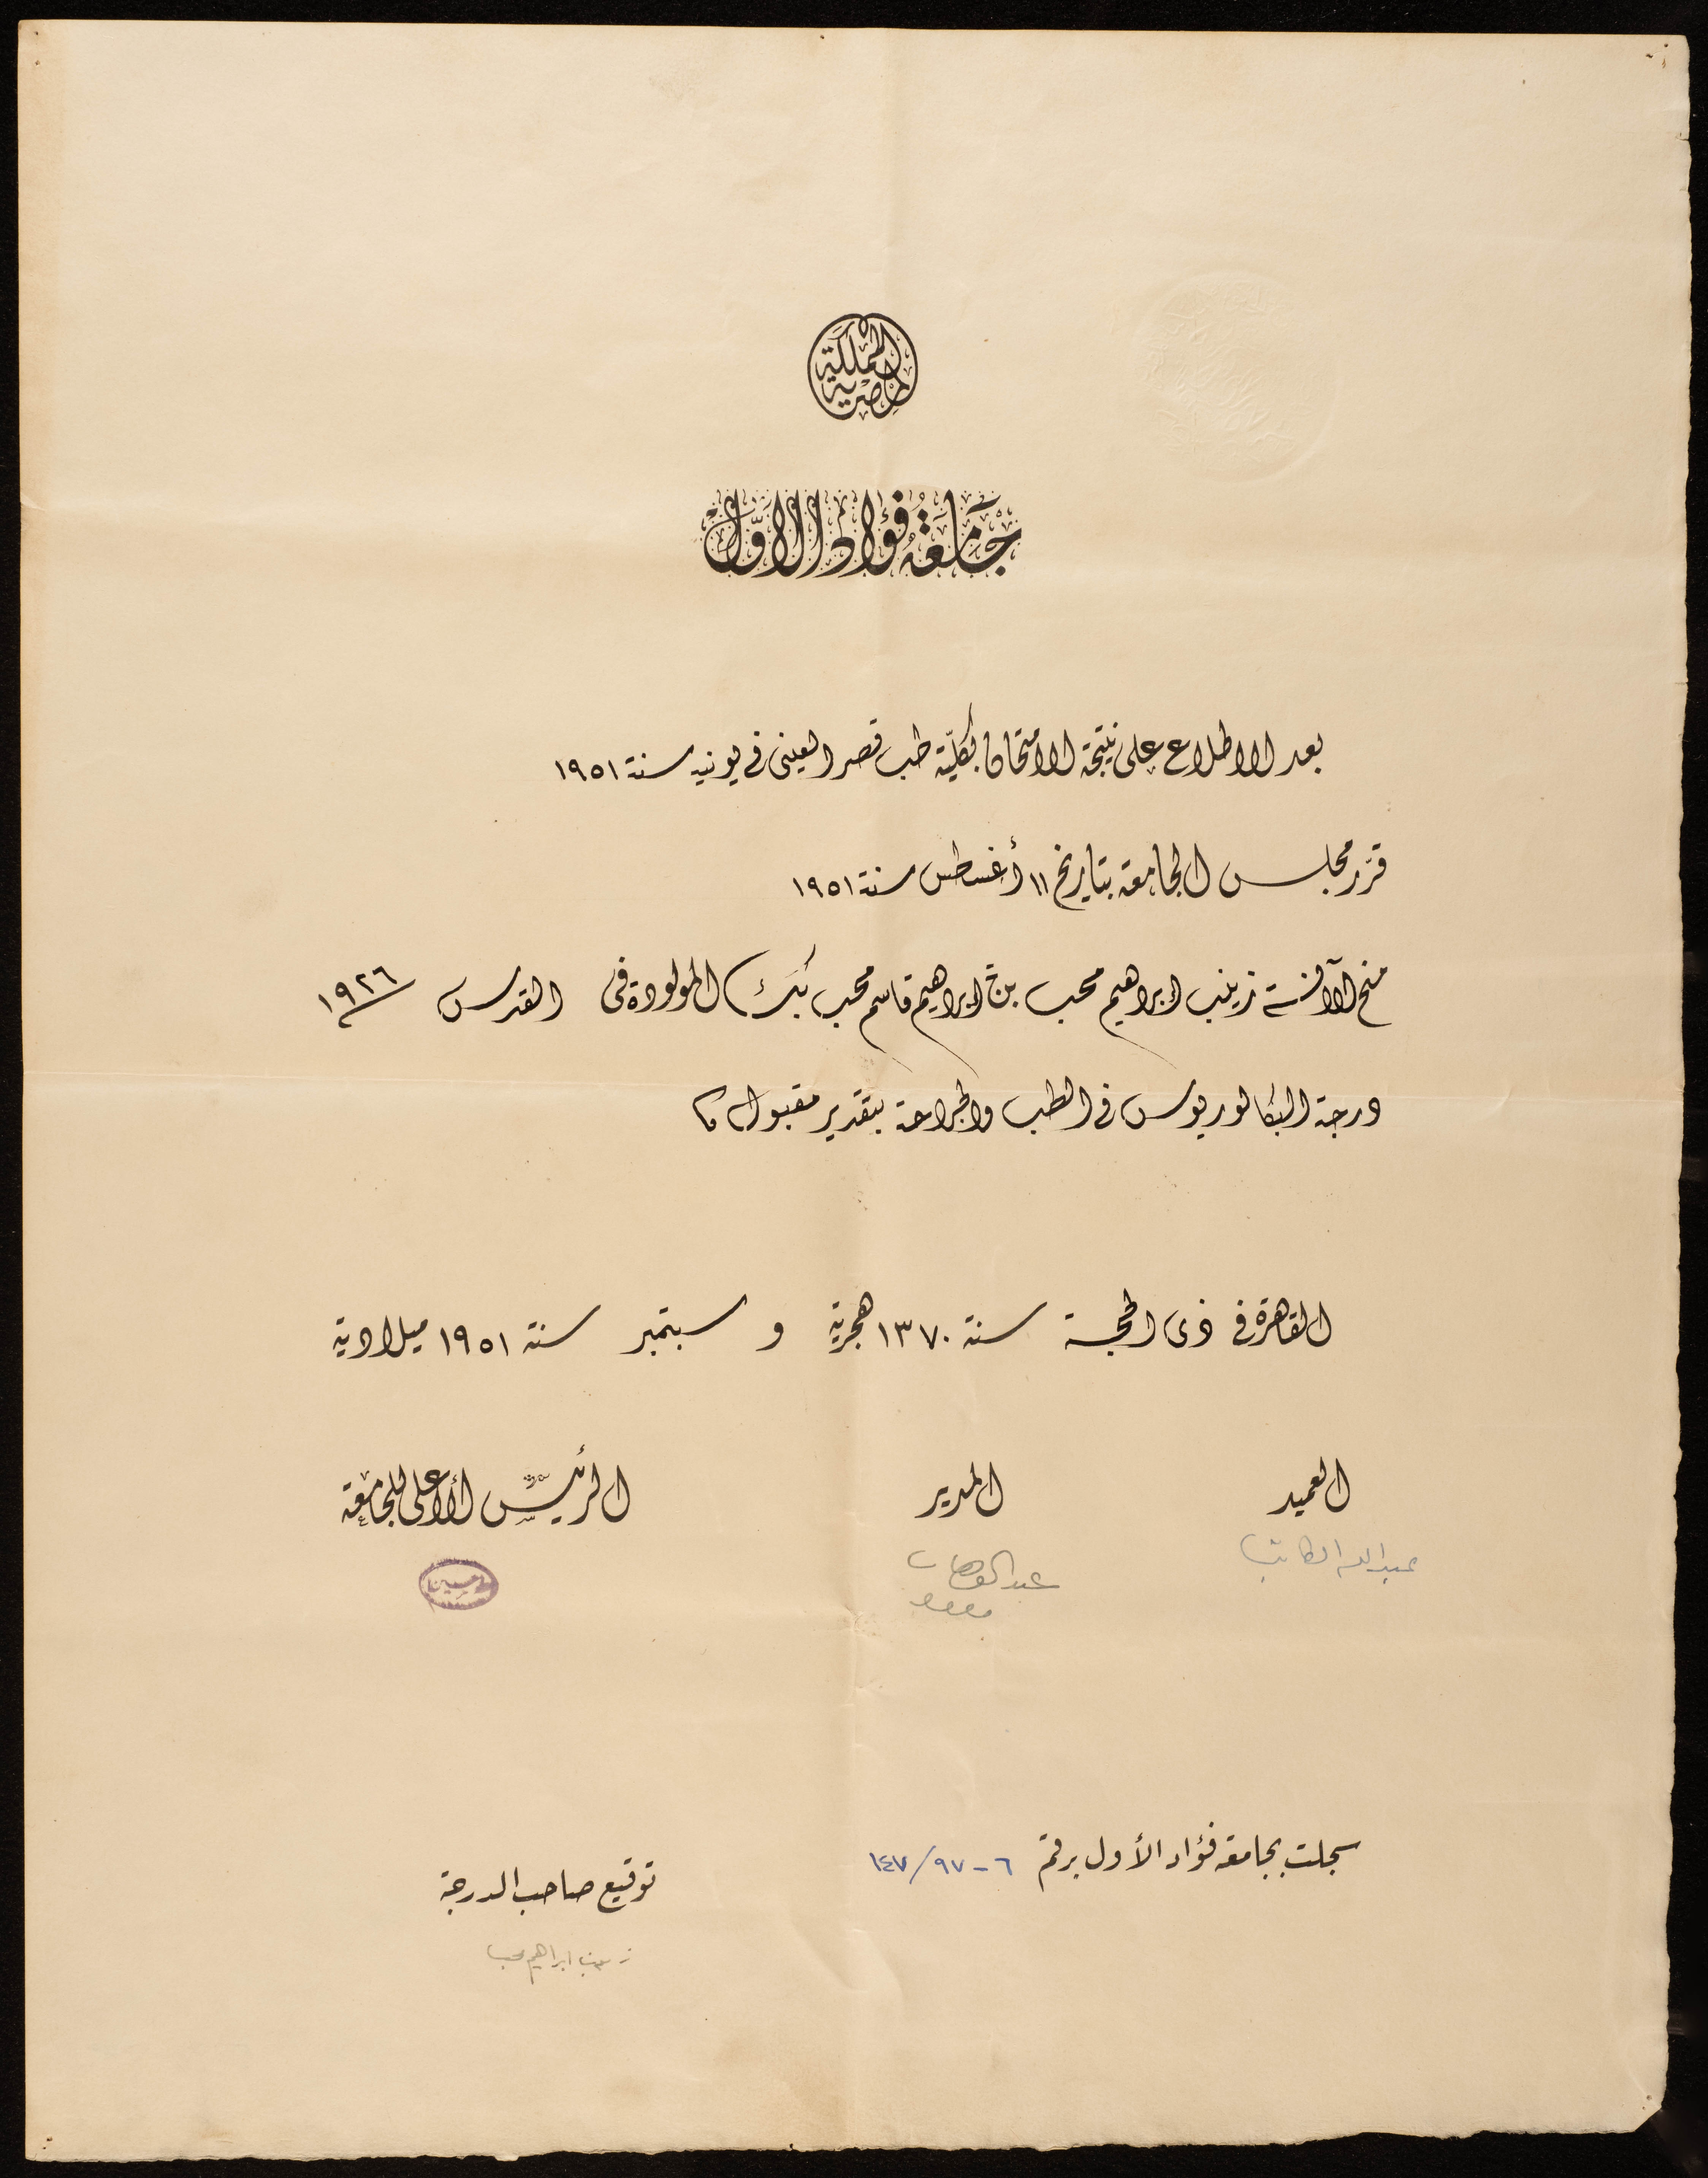 المملكة المصرية
جَامعَةُ فُؤاد الأوّل
بعد الاطلاع على نتيجة الامتحان بكليّة طب قصر العينى فى يونيه سنة ١٩٥١
قرّر مجلس الجامعة بتاريخ ١١ أغسطس سنة ١٩٥١
منح الآنسة زينب ابراهيم محب بنت ابراهيم قاسم محب بك المولودة فى القدس سنة ١٩٢٦
درجة البكالوريوس فى الطب والجراحة بتقدير مقبول
القاهرة فى ذى الحجة سنة ١٣٧٠ هجرية و سبتمبر سنة ١٩٥١ ميلادية
العميد المدير الرئيس الأعلى للجامعة
عبد الله الكاتب عبد الوهاب طه حسين
سجلت بجامعة فؤاد الأول برقم ٦ - ٩٧ / ١٤٧
توقيع صاحب الدرجة
زينب ابراهيم محب